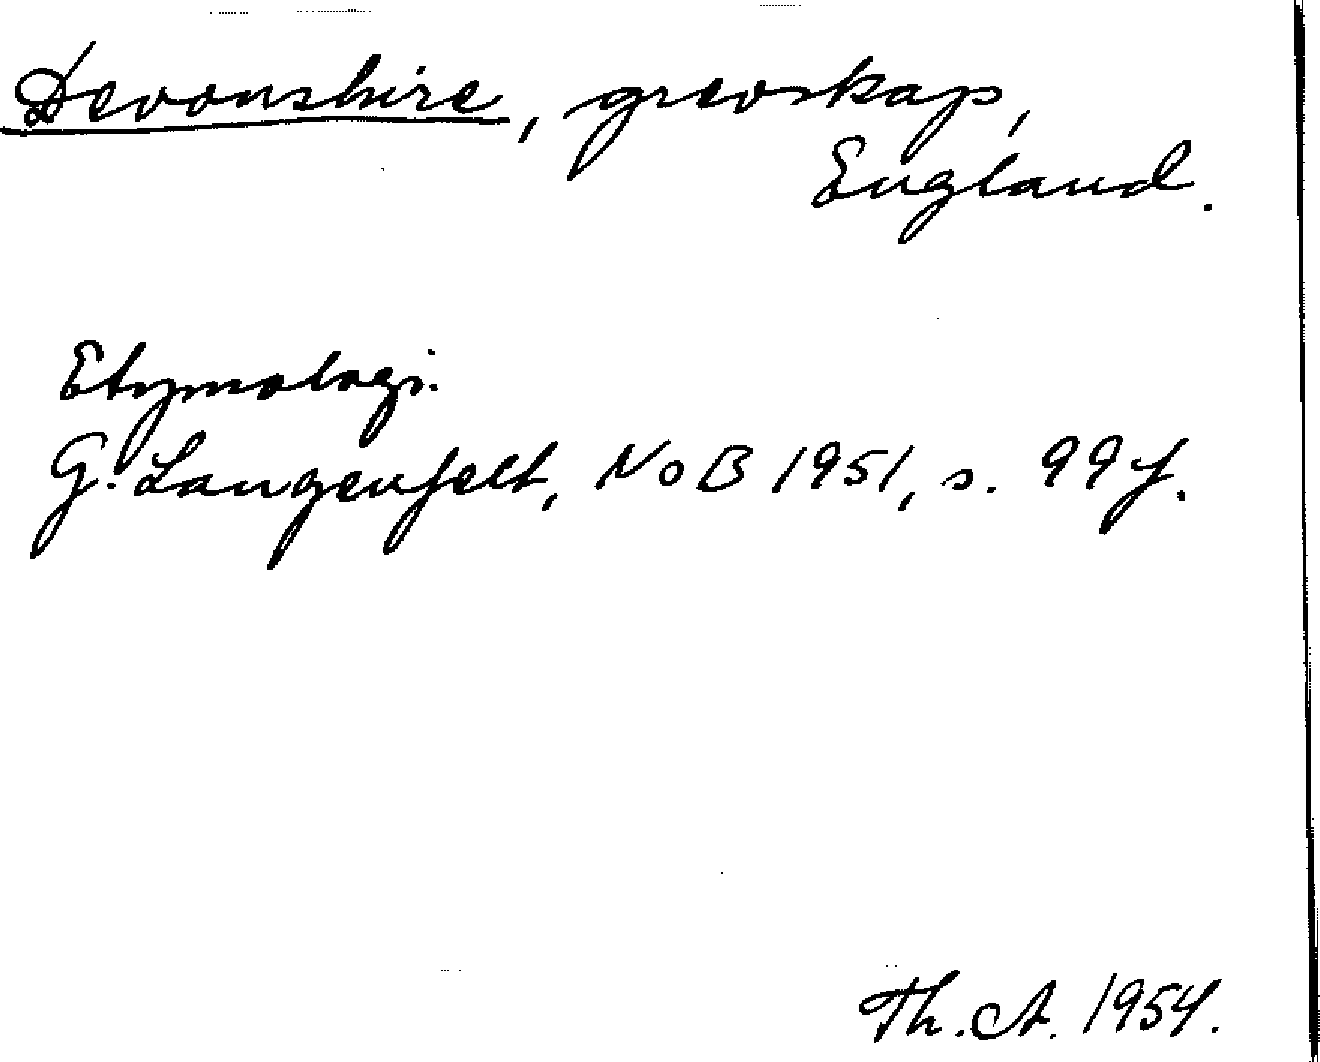 Devonshire, grevskap,
England.
Etymologi.
G. Langenfelt, NoB 1951, s. 99 f.
Th. A. 1954.